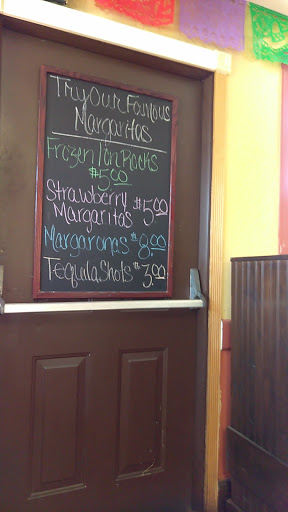 Try Our Famous
Margaritas
Frozen/on Rocks
$5.00
Strawberry
Margaritas $5.00
Margaronas $8.00
Tequila Shots $3.00